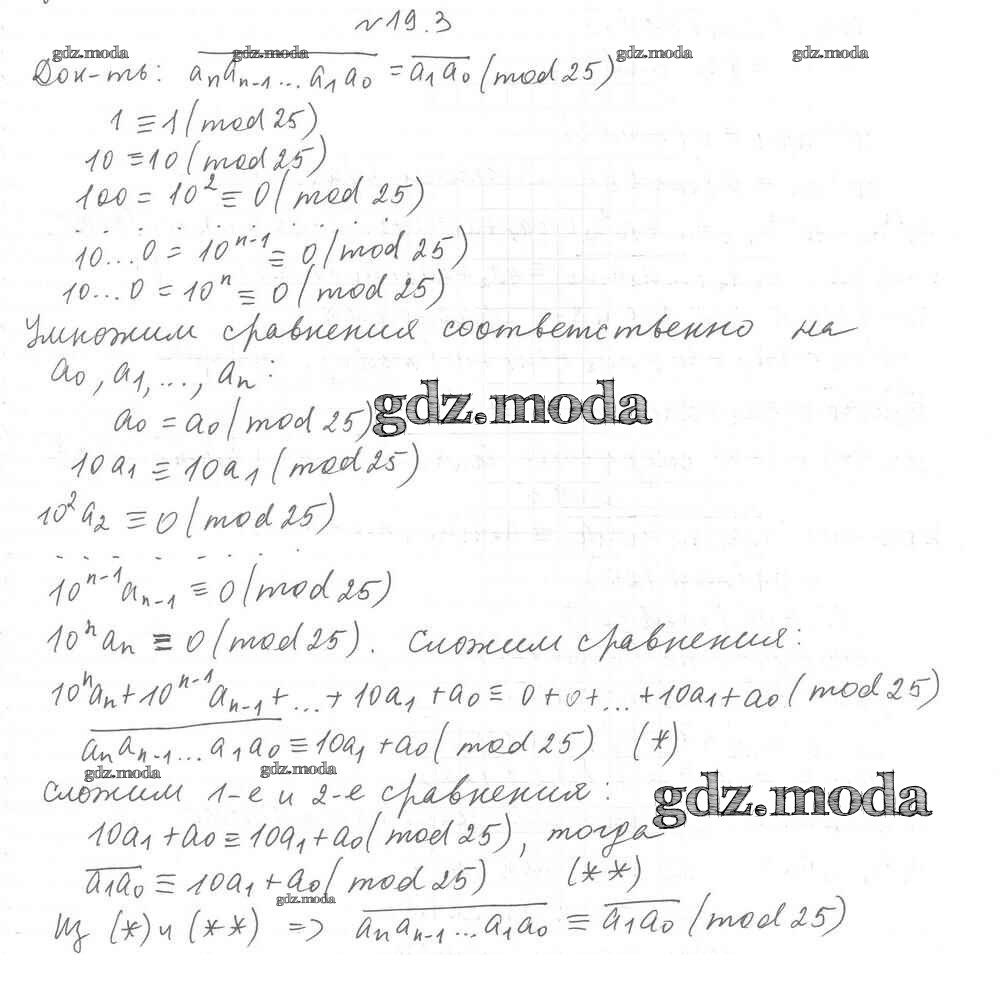 №19.3
gdz.moda gdz.moda gdz.moda gdz.moda
Док-ть: aₙaₙ₋₁...a₁a₀ = a₁a₀ (mod 25)
1 ≡ 1 (mod 25)
10 ≡ 10 (mod 25)
100 = 10² ≡ 0 (mod 25)
- - - - - - -
10...0 = 10ⁿ⁻¹ ≡ 0 (mod 25)
10...0 = 10ⁿ ≡ 0 (mod 25)
Умножим сравнения соответственно на
a₀, a₁, ..., aₙ:
a₀ = a₀ (mod 25)
gdz.moda
10a₁ ≡ 10a₁ (mod 25)
10²a₂ ≡ 0 (mod 25)
- - - - - - -
10ⁿ⁻¹aₙ₋₁ ≡ 0 (mod 25)
10ⁿaₙ ≡ 0 (mod 25). Сложим сравнения:
10ⁿaₙ + 10ⁿ⁻¹aₙ₋₁ + ... + 10a₁ + a₀ ≡ 0 + 0 + ... + 10a₁ + a₀ (mod 25)
aₙaₙ₋₁...a₁a₀ ≡ 10a₁ + a₀ (mod 25) (*)
gdz.moda gdz.moda
Сложим 1-е и 2-е сравнения:
gdz.moda
10a₁ + a₀ ≡ 10a₁ + a₀ (mod 25), тогда
a₁a₀ ≡ 10a₁ + a₀ (mod 25) (**)
gdz.moda
Из (*) и (**) => aₙaₙ₋₁...a₁a₀ ≡ a₁a₀ (mod 25)